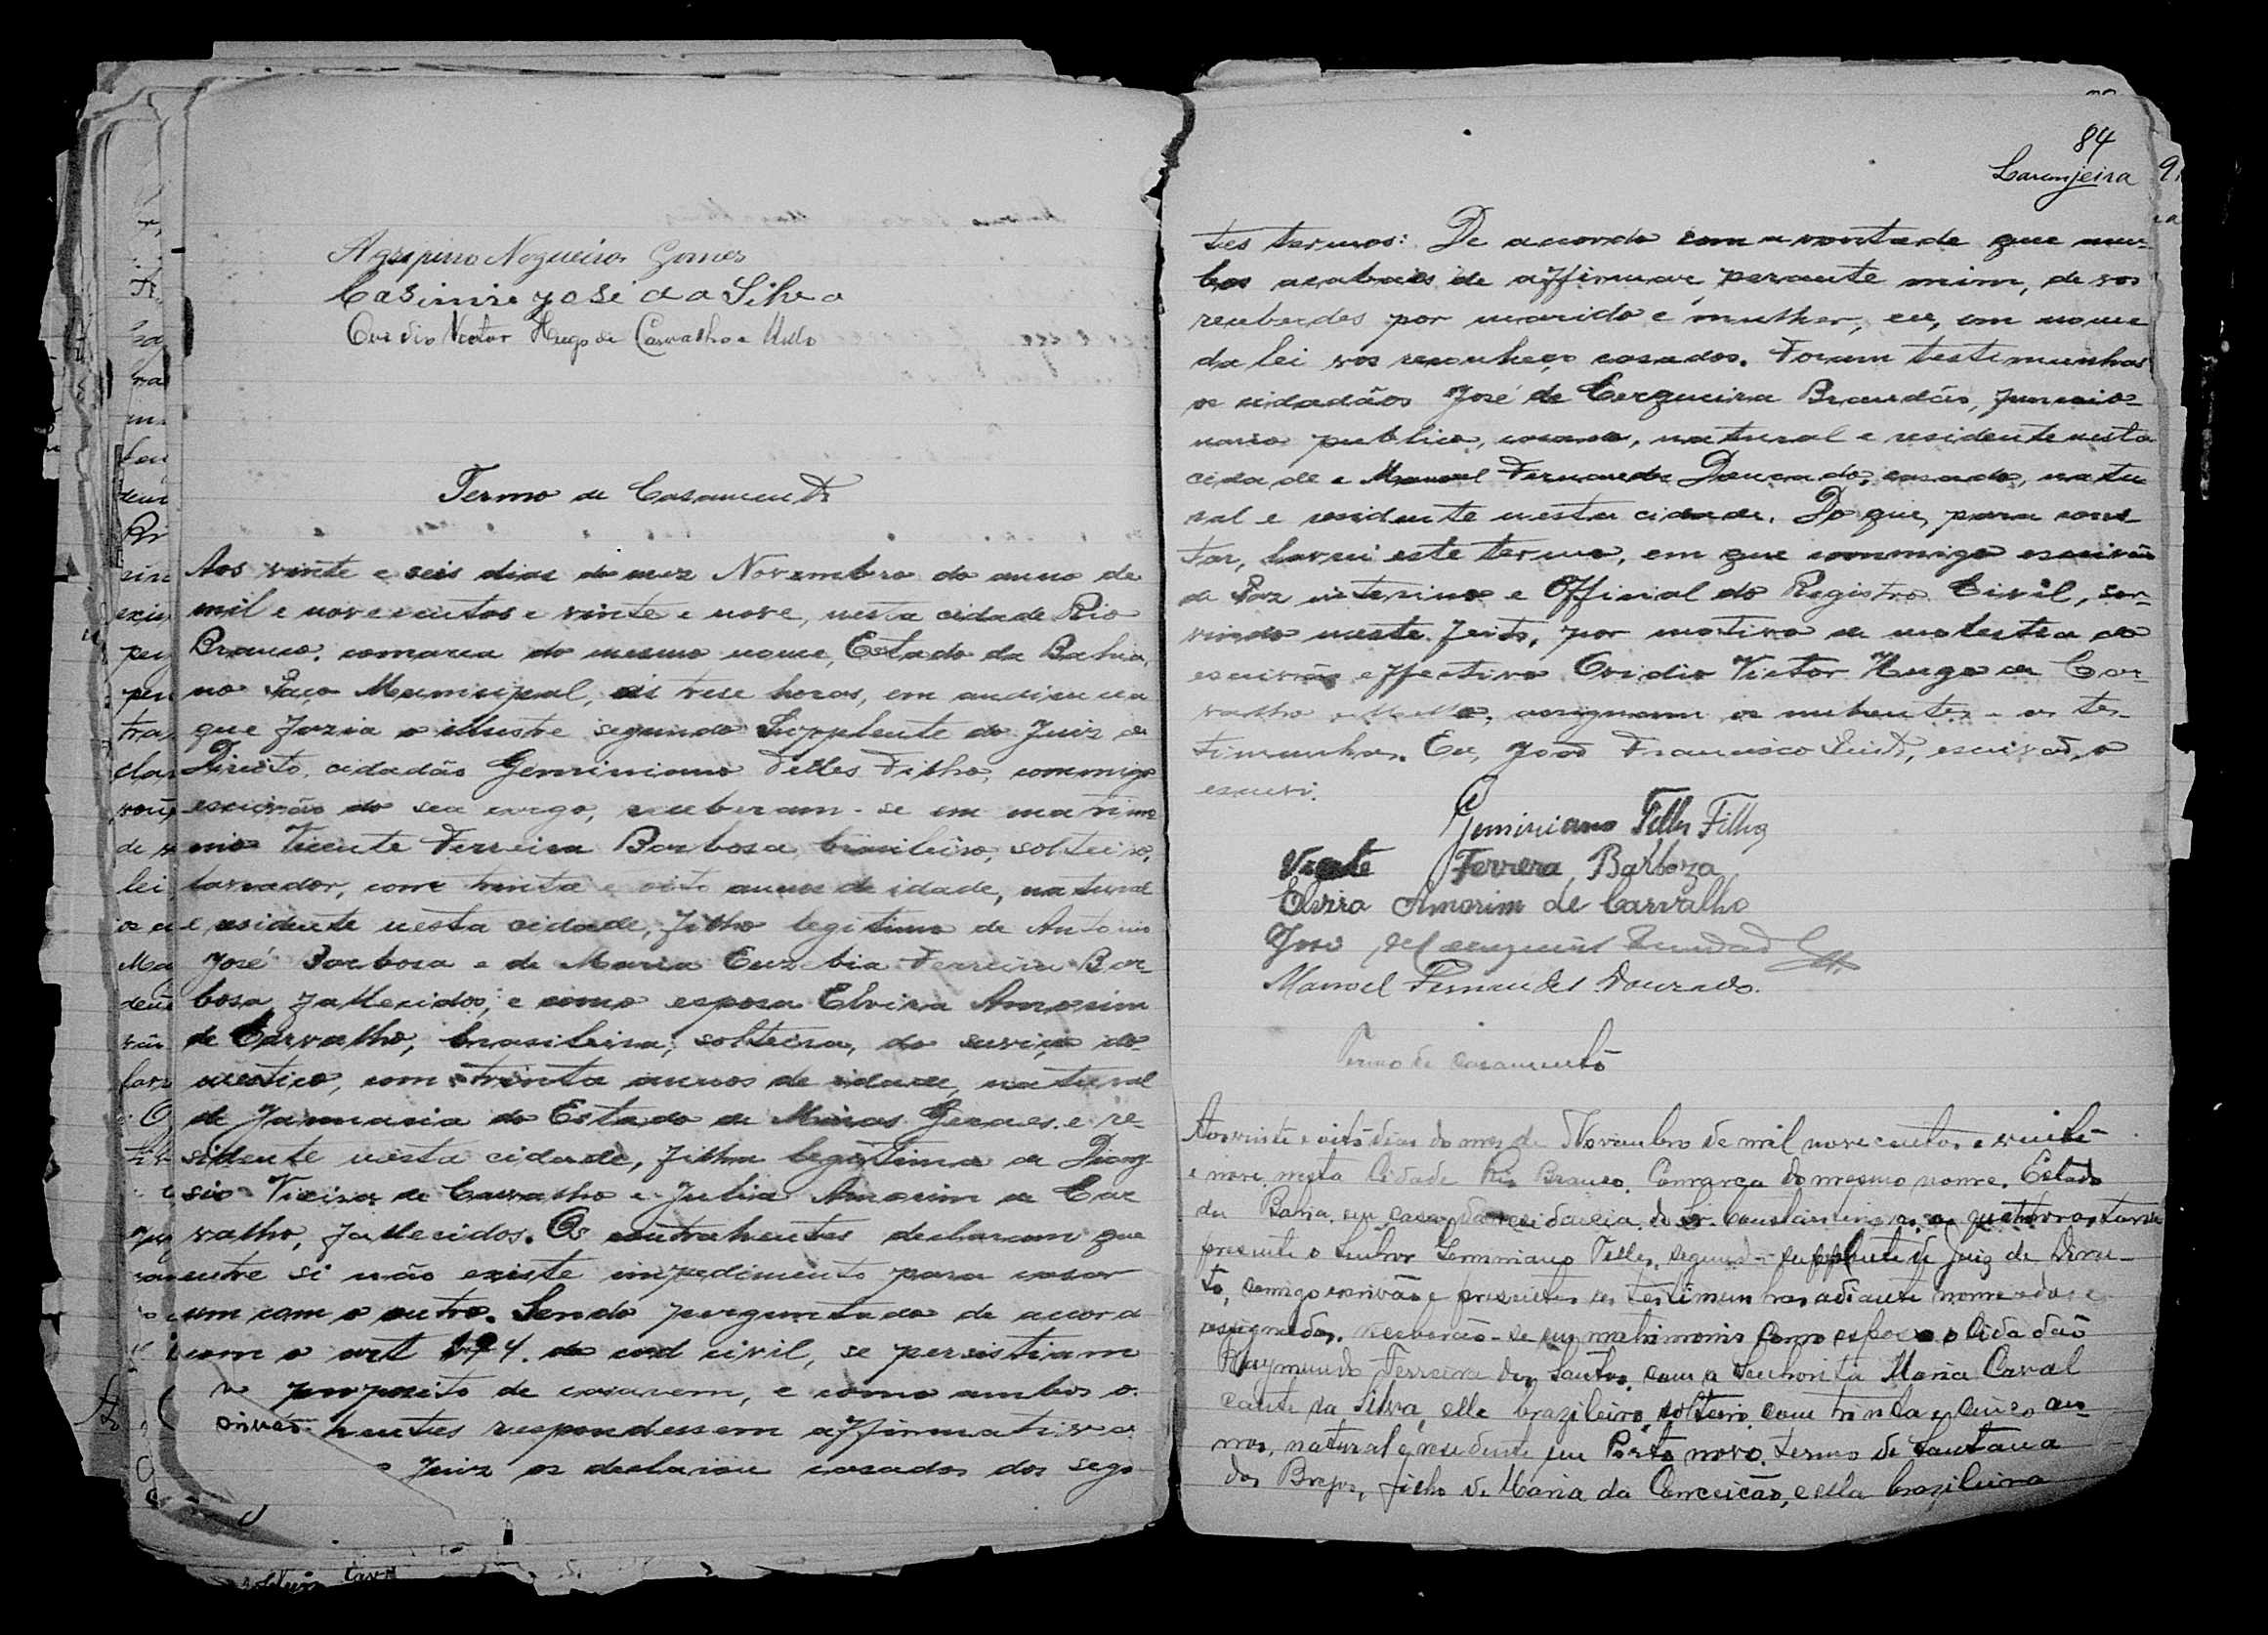 Agripino Nogueira Gomes
Casimiro José da Silva
Ovidio Victor Hugo de Carvalho e Mello
Termo de Casamento
Aos vinte e seis dias do mez Novembro do anno de
mil e novecentos e vinte e nove, nesta cidade Rio
Branco, comarca do mesmo nome, Estado da Bahia,
no Paço Municipal, ás trese horas, em audiencia
que fazia o illustre segundo Supplente do Juiz de
Direito, cidadão Geminiano Telles Filho, commigo
escrivão do seu cargo, receberam-se em matrimo
nio Vicente Ferreira Barbosa, brasileiro, solteiro,
lavrador, com trinta e oito annos de idade, natural
e residente nesta cidade, filho legitimo de Antonio
José Barbosa e de Maria Euzebia Ferreira Bar-
bosa, fallecidos; e como esposa Elvira Amorim
de Carvalho, brasileira, solteira, do serviço do-
mestico, com trinta annos de idade, natural
de Januaria do Estado de Minas Geraes e re-
sidente nesta cidade, filha legitima de Diony-
sio Vieira de Carvalho e Julia Amorim de Car
valho, fallecidos. Os contrahentes declararam que
entre si não existe impedimento para casar
um com o outro. Sendo perguntado de accord
com o art 194. do cod civil, se persistiam
no proposito de casarem, e como ambos o
hentes respondessem affirmativa
o Juiz os declarou casados dos segu
84
Laranjeira
tes termos: De accordo com a vontade que am-
bos acabaes de affirmar, perante mim, de vos
receberdes por marido e mulher, eu, em nome
da lei vos reconheço casados. Foram testimunhas
os cidadãos José de Cerqueira Brandão, funccio-
nario publico, casado, natural e residente nesta
cidade e Manoel Fernandes Dourado, casado, natu
ral e residente nesta cidade. Do que, para cons-
tar, lavrei este termo, em que commigo escrivão
de Paz interino e Official do Registro Civil, ser-
vindo neste feito, por motivo de molestia do
escrivão effectivo Ovidio Victor Hugo de Car-
valho e Mello, assignam os nubentes e as tes-
timunhas. Eu, João Francisco escrivão, o
escrevi.
Geminiano Telles Filho
Vicente Ferrera Barboza
Elvira Amorim de Carvalho
José de Cerqueira
Manoel Fernandes Dourado.
Termo de casamento
Aos vinte e oito dias do mes de Novembro de mil novecentos e vinte
e nove, nesta Cidade Rio Branco, Comarca do mesmo nome, Estado
da Bahia, em casa da residencia do Sr. as quatorze
presente o Senhor Geminiano Telles, segundo supplente de Juiz de Direi-
to, comigo escrivão e presentes as testimunhas adiante nomeadas e
assignadas, receberão-se em mathimonio como esposo o Cidadão
Raymundo Ferreira dos Santos, com a Senhorita Maria Caval
cante da Silva, elle brazileiro solteiro com trinta e cinco an-
nos, natural e residente em Porto novo, termo de Santana
dos Brejos, filho de Maria da Conceição, e ella brazileira